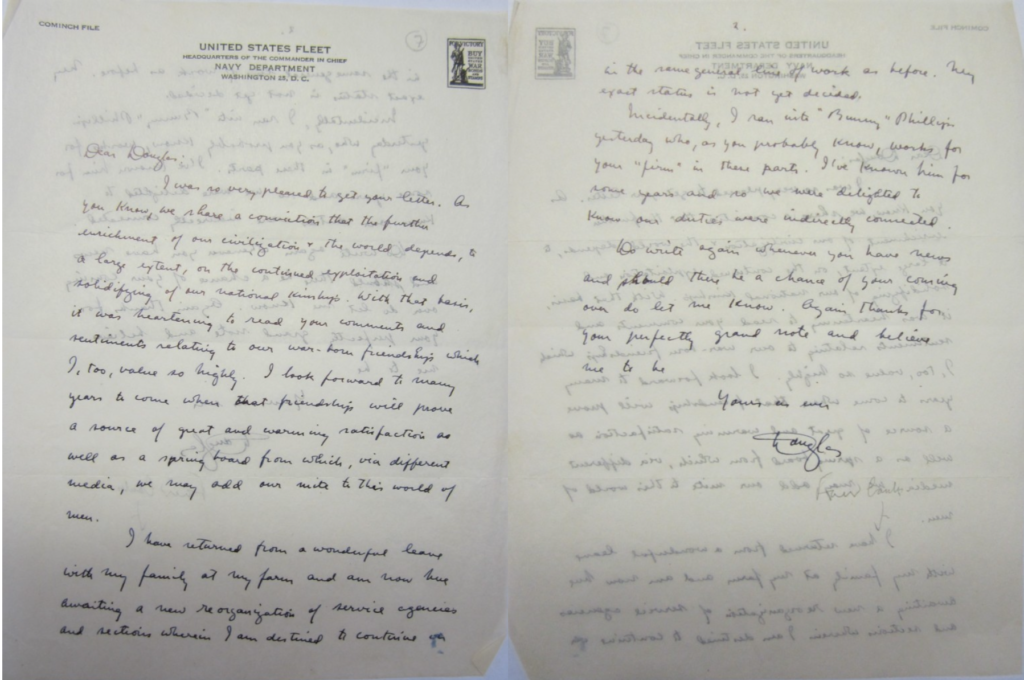 COMINCH FILE
UNITED STATES FLEET
HEADQUARTERS OF THE COMMANDER IN CHIEF
NAVY DEPARTMENT
WASHINGTON 25, D. C.
FOR VICTORY
BUY
Dear Douglas:
I was so very pleased to get your letter. As
you know, we share a conviction that the further
enrichment of our civilization & the world depends, to
a large extent, on the continued exploitation and
solidifying of our national kinships. With that basis,
it was heartening to read your comments and
sentiments relating to our war-born friendship which
I, too, value so highly. I look forward to many
years to come when that friendship will prove
a source of great and warming satisfaction as
well as a spring board from which, via different
media, we may add our mite to this world of
men.
I have returned from a wonderful leave
with my family at my farm and am now here
awaiting a new reorganization of service agencies
and sections wherein I am destined to continue
2.
in the same general line of work as before. My
exact status is not yet decided.
Incidentally, I ran into "Bunny" Phillips
yesterday who, as you probably know, works for
your "firm" in these parts. I've known him for
some years and so we were delighted to
know our duties were indirectly connected.
Do write again whenever you have news
and should there be a chance of your coming
over do let me know. Again thanks for
your perfectly grand note and believe
me to be
Yours as ever
Douglas